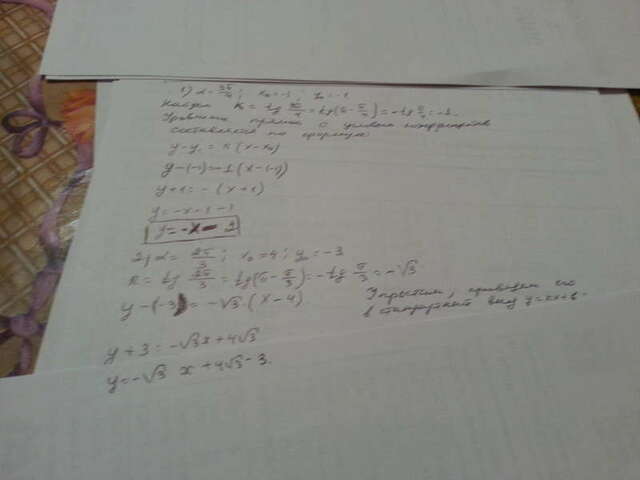 1) α = 3π/4; x₀ = -1; y₀ = -1
Найдем k = tg 3π/4 = tg(π - π/4) = -tg π/4 = -1.
Уравнение прямой с угловым коэффициентом
составляется по формуле
y - y₀ = k(x - x₀)
y - (-1) = -1(x - (-1))
y + 1 = -(x + 1)
y = -x - 1 - 1
y = -x - 2
2) α = 2π/3; x₀ = 4; y₀ = -3
k = tg 2π/3 = tg(π - π/3) = -tg π/3 = -√3
y - (-3) = -√3·(x - 4)
Упростим, приведем его
в стандартный вид y = kx + b.
y + 3 = -√3x + 4√3
y = -√3 x + 4√3 - 3.